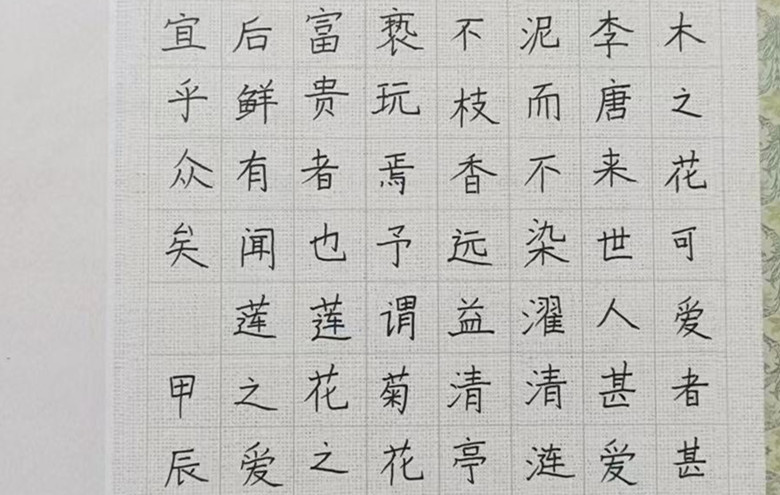 木之花可爱者甚
李唐来世人甚爱
泥而不染濯清涟
不枝香远益清亭
亵玩焉予谓菊花
富贵者也莲花之
后鲜有闻莲之爱
宜乎众矣 甲辰